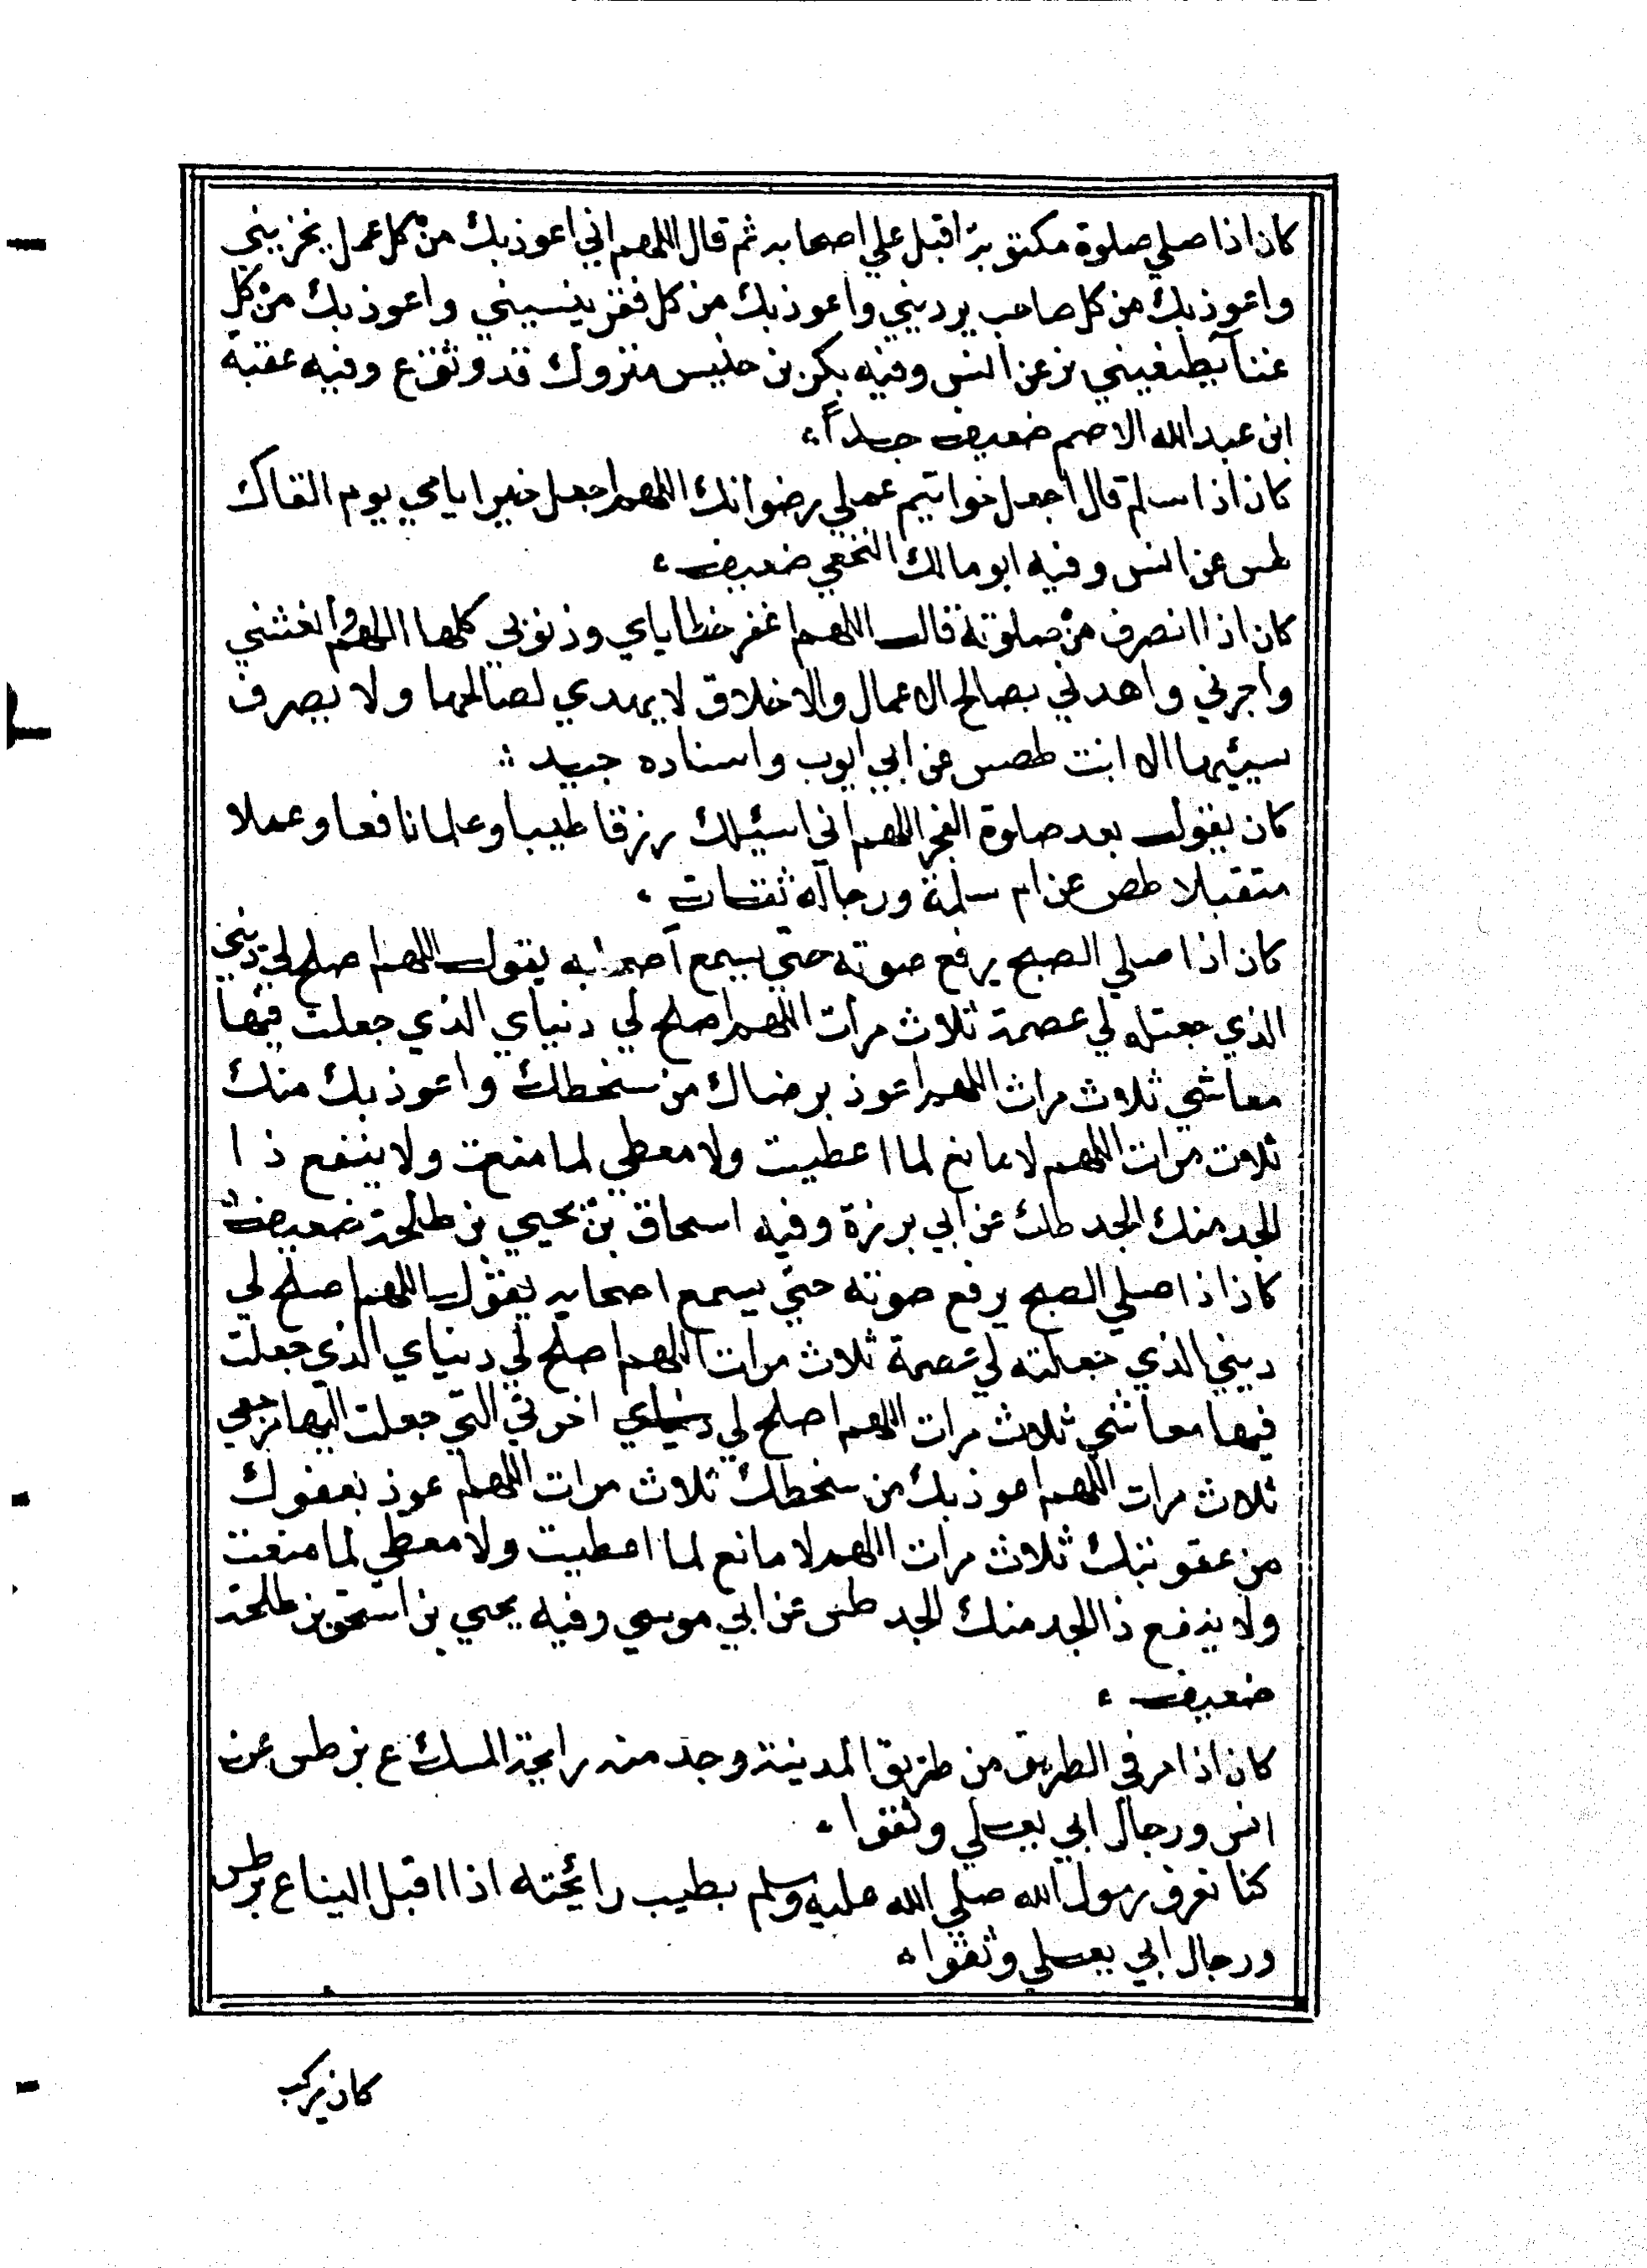 كان اذا صلي صلوة مكتوبة اقبل علي اصحابه ثم قال اللهم اني اعوذ بك من كل عمل يخزيني
واعوذ بك من كل صاحب يرديني واعوذ بك من كل فقر ينسيني واعوذ بك من كل
غنآ يطغيني بز عن انس وفيه بكر بن خنيس متروك قد وثق ع وفيه عقبة
ابن عبد الله الاصم ضعيف جداً
كان اذا سلم قال اجعل خواتيم عملي رضوانك اللهم اجعل خير ايامي يوم القاك
طس عن انس وفيه ابو مالك النخعي ضعيف
كان اذا انصرف من صلوته قال اللهم اغفر خطاياي وذنوبي كلها اللهم وانعشني
واجرني واهدني بصالح الاعمال والاخلاق لا يهدي لصالحها ولا يصرف
سيئها الا انت طصس عن ابي ايوب واسناده جيد
كان يقول بعد صلوة الفجر اللهم اني اسئلك رزقا طيبا وعلما نافعا وعملا
متقبلا طص عن ام سلمة ورجاله ثقات
كان اذا صلي الصبح يرفع صوته حتي يسمع اصحابه يقول اللهم اصلح لي ديني
الذي جعتله لي عصمة ثلاث مرات اللهم اصلح لي دنياي الذي جعلت فيها
معاشي ثلاث مرات اللهم اعوذ برضاك من سخطك واعوذ بك منك
ثلاث مرات اللهم لا مانع لما اعطيت ولا معطي لما منعت ولا ينفع ذا
الجد منك الجد طك عن ابي برزة وفيه اسحاق بن يحيي بن طلحة ضعيف
كان اذا صلي الصبح يرفع صوته حتي يسمع اصحابه يقول اللهم اصلح لي
ديني الذي جعلته لي عصمة ثلاث مرات اللهم اصلح لي دنياي الذي جعلت
فيها معاشي ثلاث مرات اللهم اصلح لي دنياي اخرتي التي جعلت اليها مرجعي
ثلاث مرات اللهم اعوذ بك من سخطك ثلاث مرات اللهم عوذ بعفوك
من عقوبتك ثلاث مرات اللهم لا مانع لما اعطيت ولا معطي لما منعت
ولا ينفع ذا الجد منك الجد طس عن ابي موسي وفيه يحيي بن اسحق بن طلحة
ضعيف
كان اذا مر في الطريق من طريق المدينة وجد منه رايحة المسك ع بز طس عن
انس ورجال ابي يعلي وثقوا
كنا نعرف رسول الله صلي الله عليه وسلم بطيب رائحته اذا اقبل الينا ع بز طس
ورجال ابي يعلي وثقوا
كان يركب